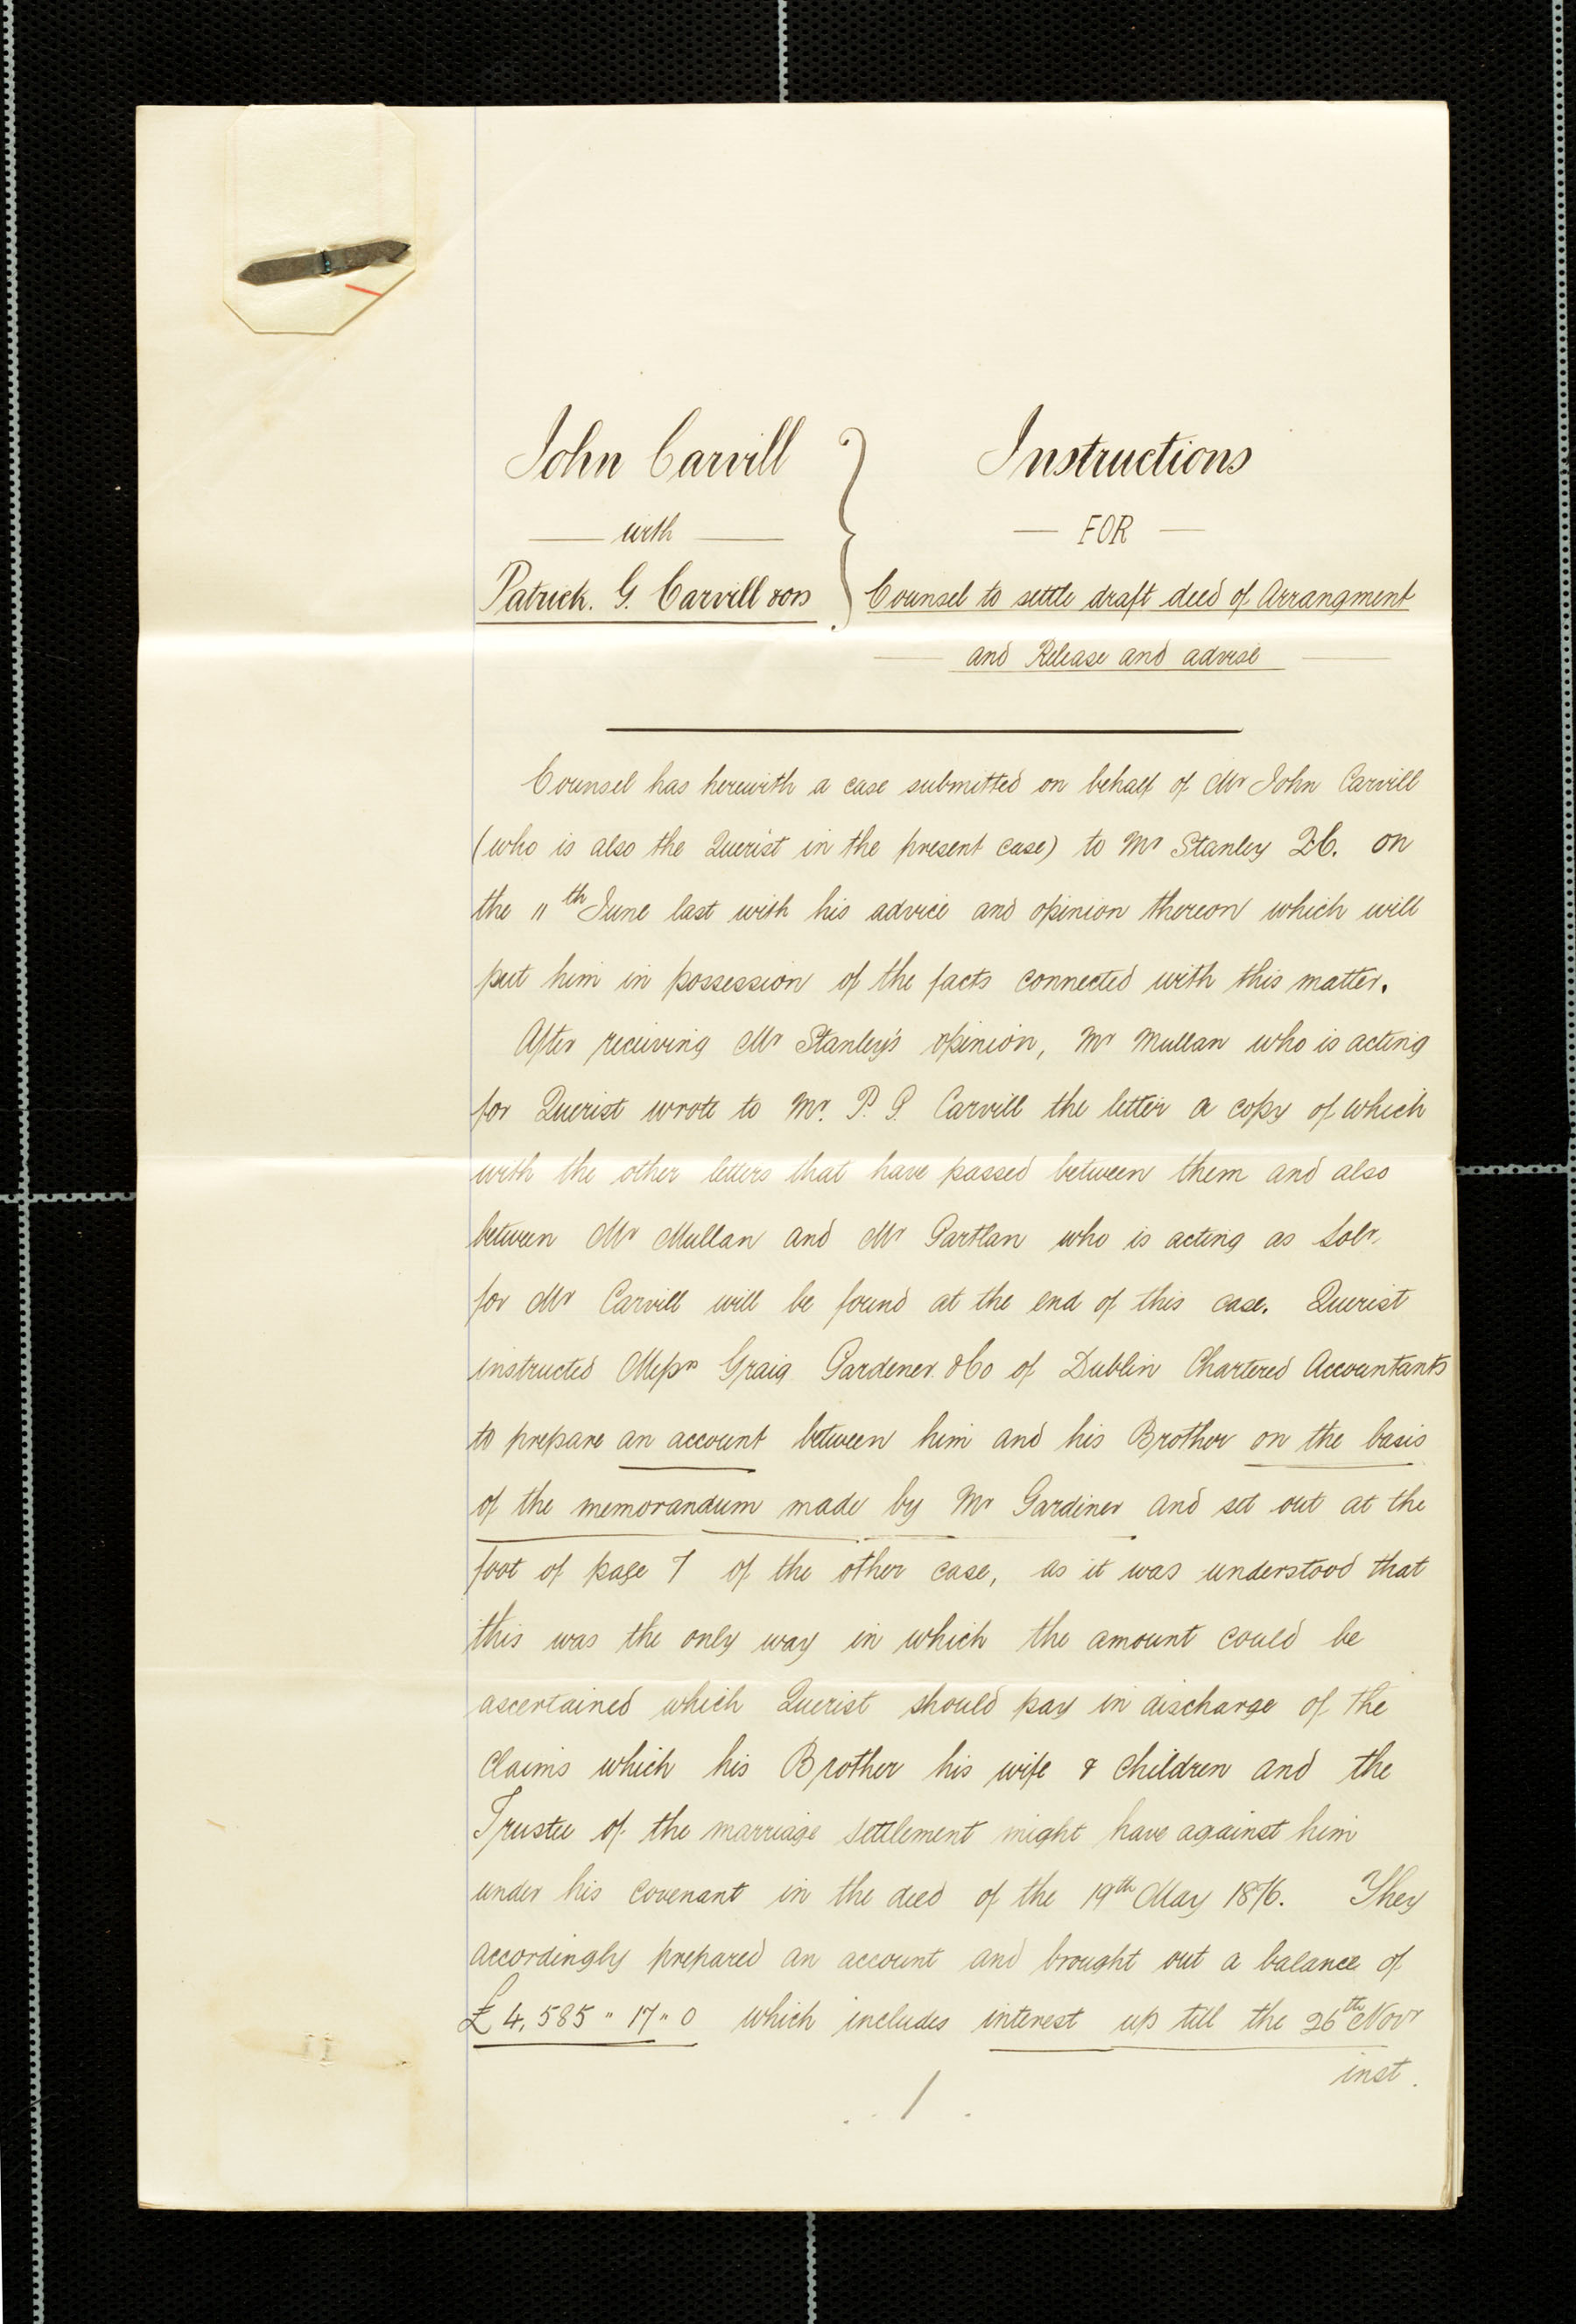 John Carvill
with
Patrick. G. Carvill & ors
Instructions
FOR
Counsel to settle draft deed of Arrangment
and Release and advise
Counsel has herewith a case submitted on behalf of Mr John Carvill
(who is also the Querist in the present case) to Mr Stanley Q.C. on
the 11th June last with his advice and opinion thereon which will
put him in possession of the facts connected with this matter.
After receiving Mr Stanley's opinion, Mr Mullan who is acting
for Querist wrote to Mr. P. G. Carvill the letter a copy of which
with the other letters that have passed between them and also
between Mr Mullan and Mr Partlan who is acting as Solr.
for Mr Carvill will be found at the end of this case. Querist
instructed Messrs Graig Gardener & Co of Dublin Chartered Accountants
to prepare an account between him and his Brother on the basis
of the memorandum made by Mr Gardiner and set out at the
foot of page 7 of the other case, as it was understood that
this was the only way in which the amount could be
ascertained which Querist should pay in discharge of the
claims which his Brother his wife & children and the
Trustee of the marriage settlement might have against him
under his covenant in the deed of the 19th May 1876. They
accordingly prepared an account and brought out a balance of
£4,585 " 17 " 0 which includes interest up till the 26th Novr
inst.
1